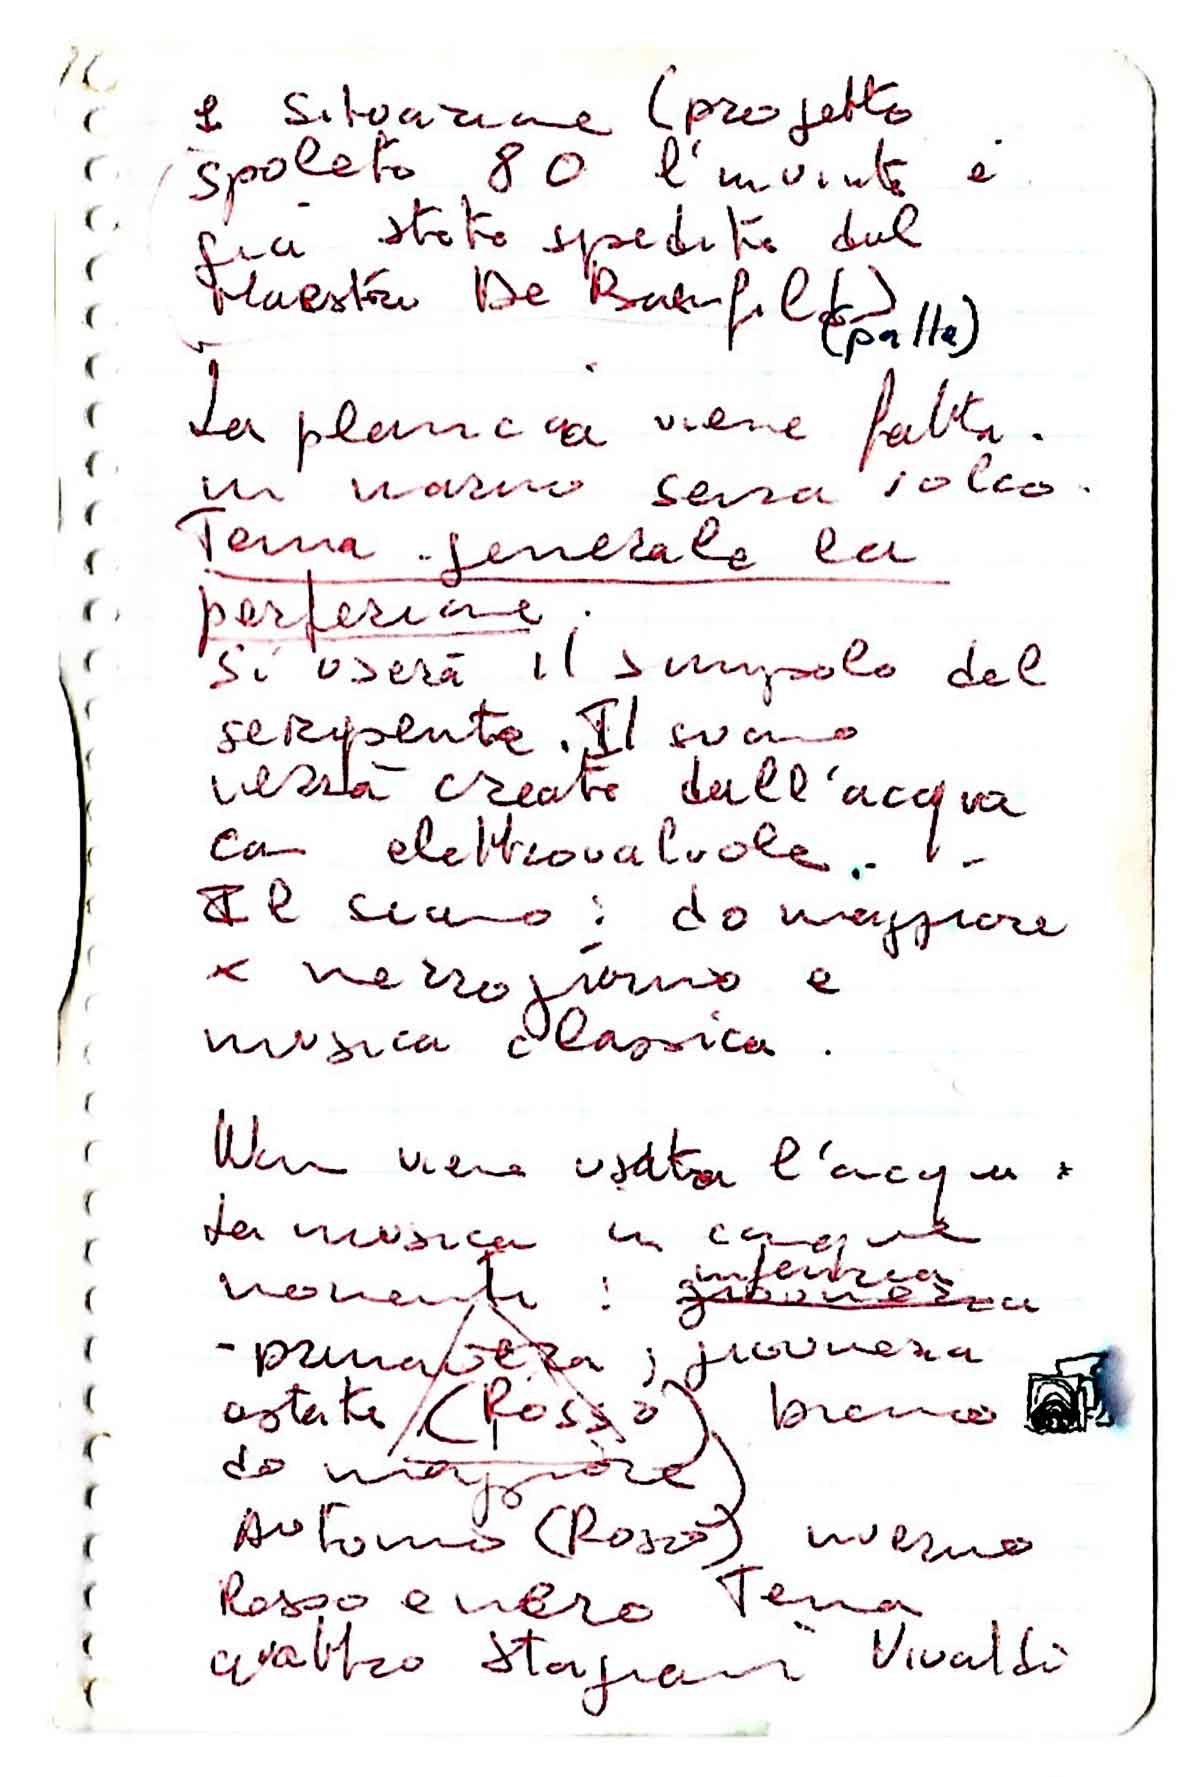 1 Situazione (progetto
Spoleto 80 l'invito è
già stato spedito dal
Maestro De Banfild)
(palla)
La plancia viene fatta
in marmo senza solco.
Tema generale la
perfezione.
Si userà il simbolo del
serpente. Il suono
verrà creato dall'acqua
con elettrovalvole.
Il suono: do maggiore
x mezzogiorno e
musica classica.
Non viene usata l'acqua.
La musica in cinque
momenti: giovinezza
infanzia
- primavera; giovinezza
estate (Rosso) bianco
do maggiore)
Autunno (Rosso) inverno
Rosso e nero Tema
quattro stagioni Vivaldi